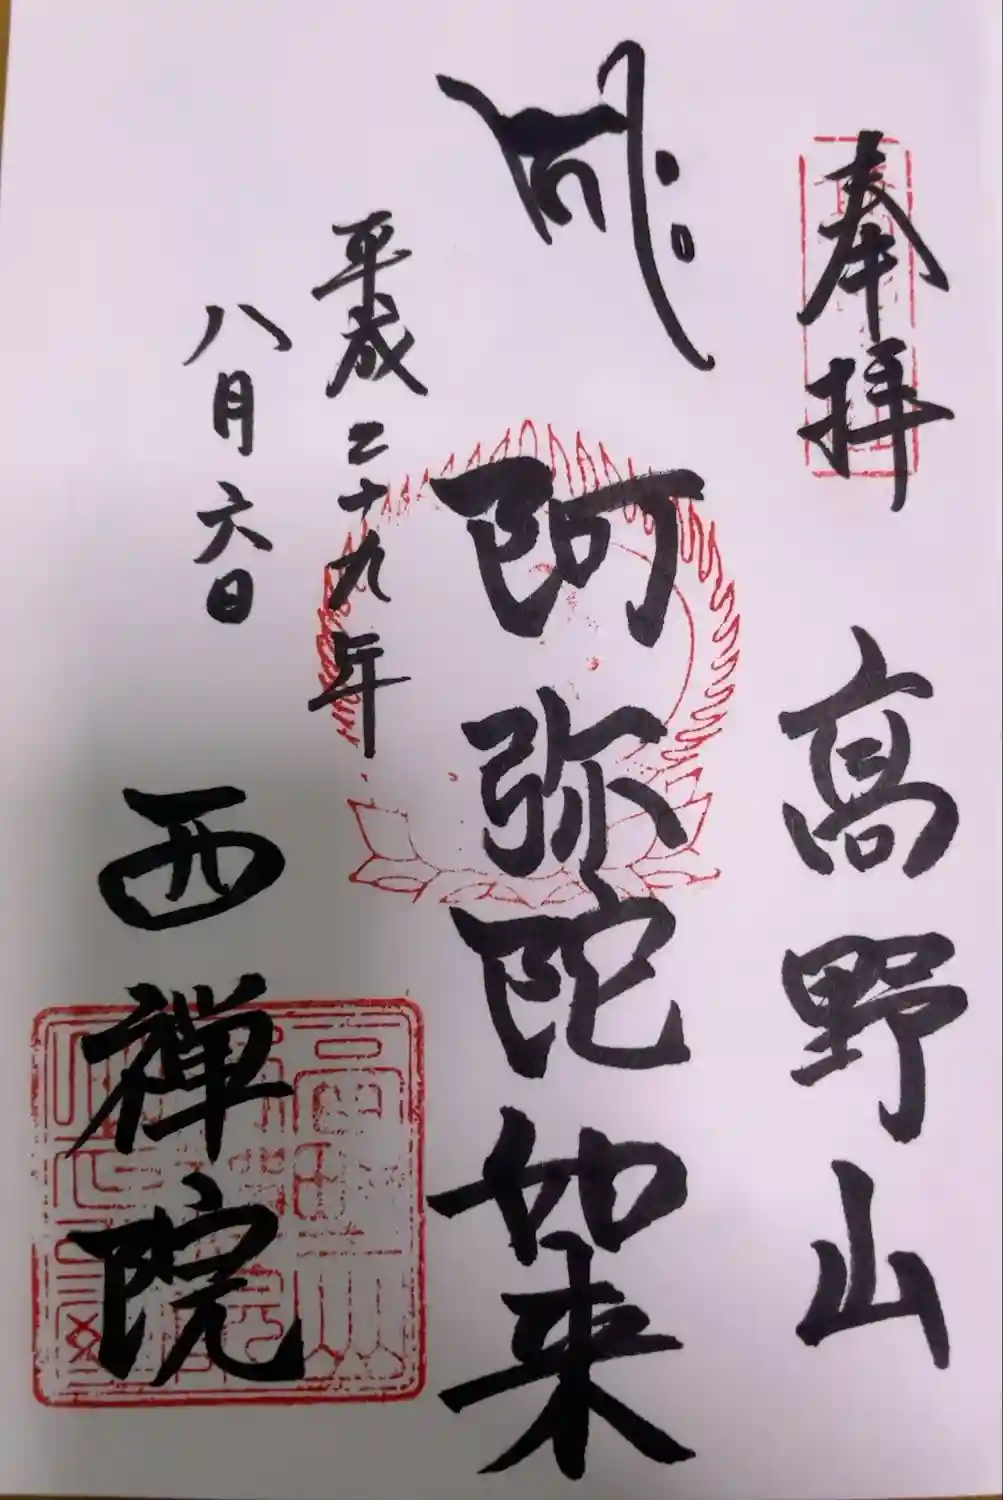 奉拝
高野山
阿弥陀如来
平成二十九年
八月六日
西禅院